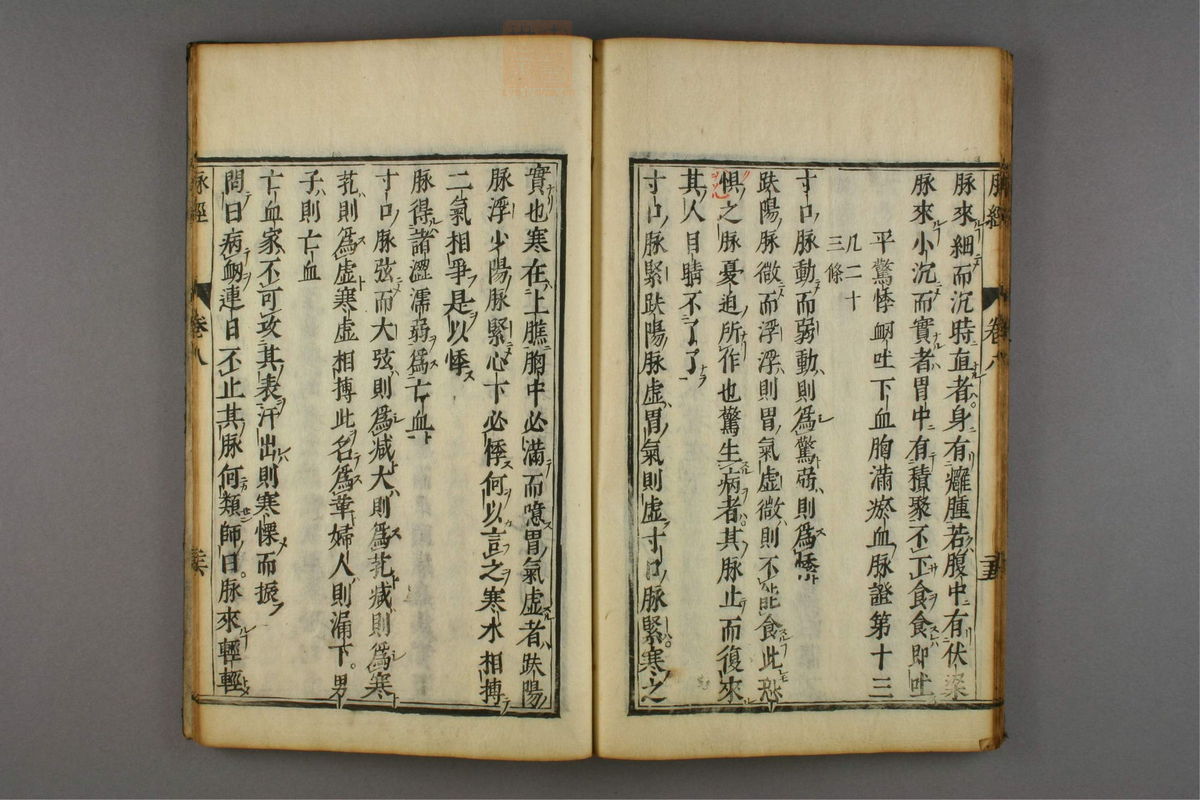 脉經
卷八
脉來細而沉時直者身有癰腫若腹中有伏梁
脉來小沉而實者胃中有積聚不下食食即吐
平驚悸衂吐下血胸滿瘀血脉證第十三
凡二十
三條
寸口脉動而弱動則爲驚弱則爲悸
趺陽脉微而浮浮則胃氣虚微則不能食此恐
惧之脉憂迫所作也驚生病者其脉止而復來
其人目睛不了了
寸口脉緊趺陽脉虚胃氣則虚寸口脉緊寒之
實也寒在上膲胸中必滿而噫胃氣虚者趺陽
脉浮少陽脉緊心下必悸何以言之寒水相搏
二氣相爭是以悸
脉得諸澀濡弱爲亡血
寸口脉弦而大弦則爲减大則爲芤减則爲寒
芤則爲虚寒虚相搏此名爲革婦人則漏下男
子則亡血
亡血家不可攻其表汗出則寒慄而振
問曰病衂連日不止其脉何類師曰脉來輕輕
脉經
卷八